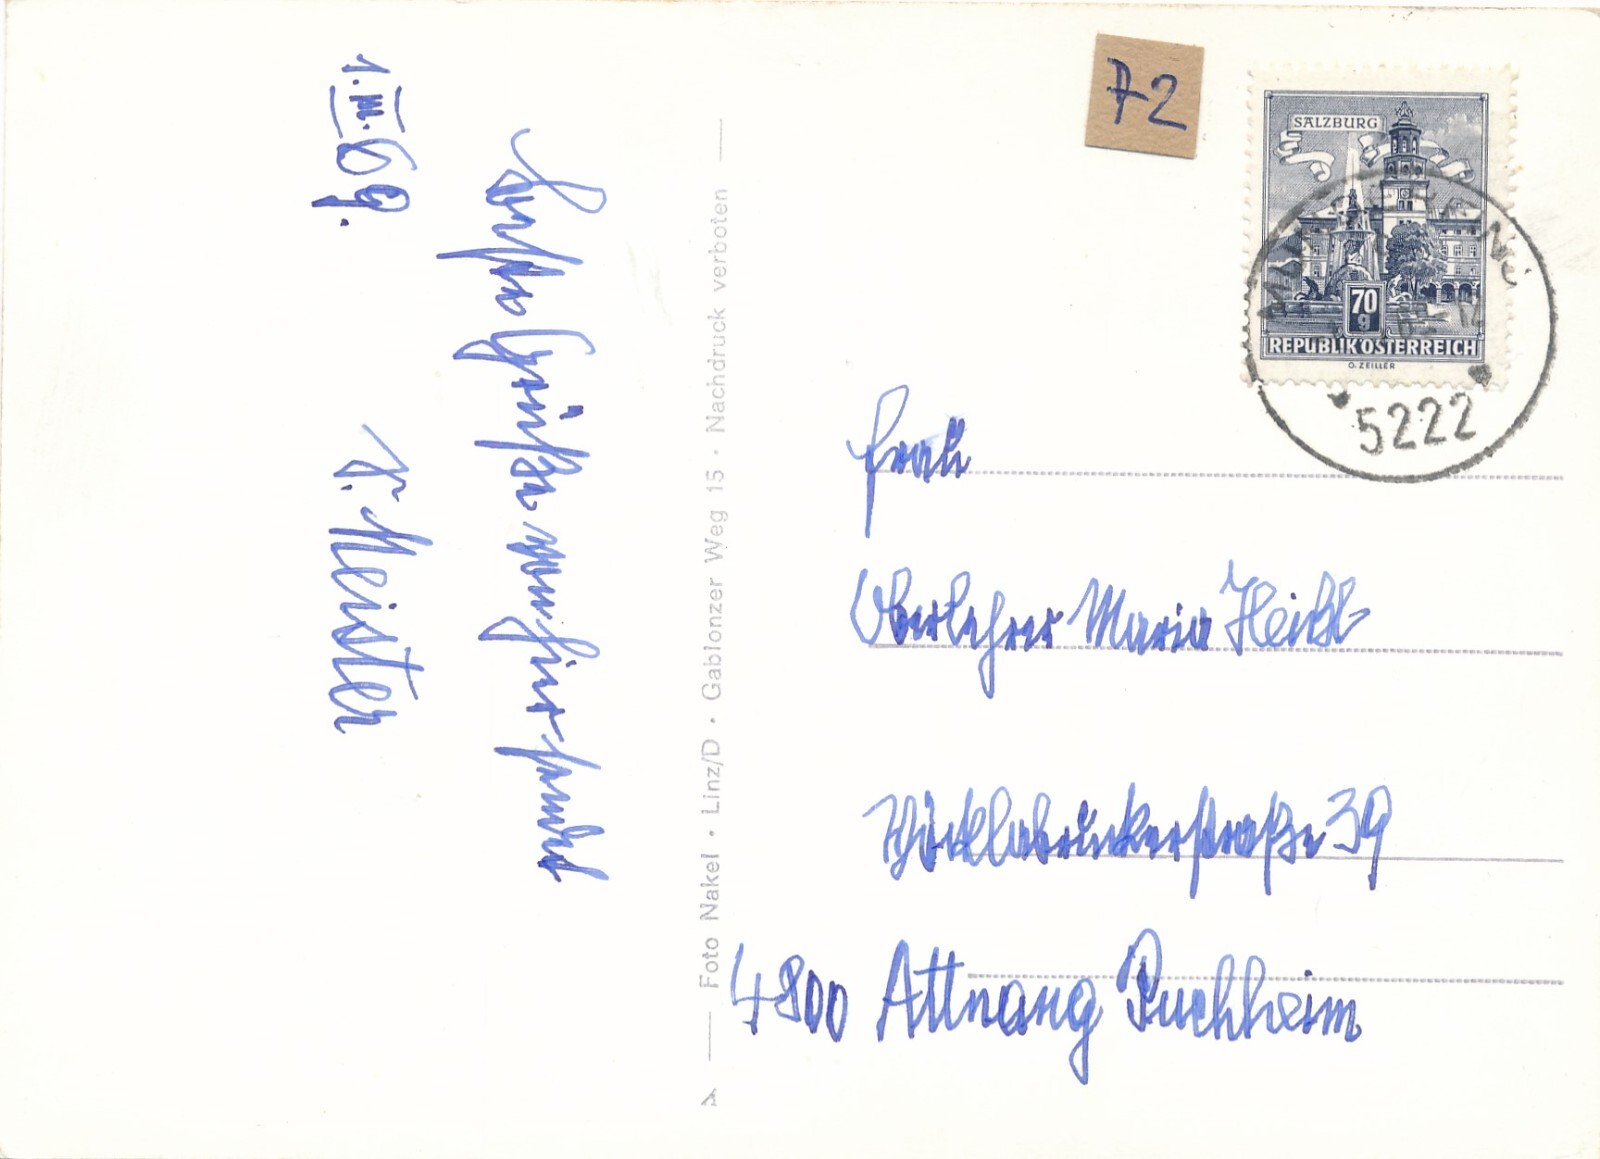 1.III.69.
Beste Grüße von hier sendet
K. Meister
Foto Nakel · Linz/D · Gablonzer Weg 15 · Nachdruck verboten
72
SALZBURG
70
g
REPUBLIK ÖSTERREICH
O. ZEILLER
5222
Frau
Oberlehrer Maria
Vöcklabruckerstraße 39
4800 Attnang Puchheim